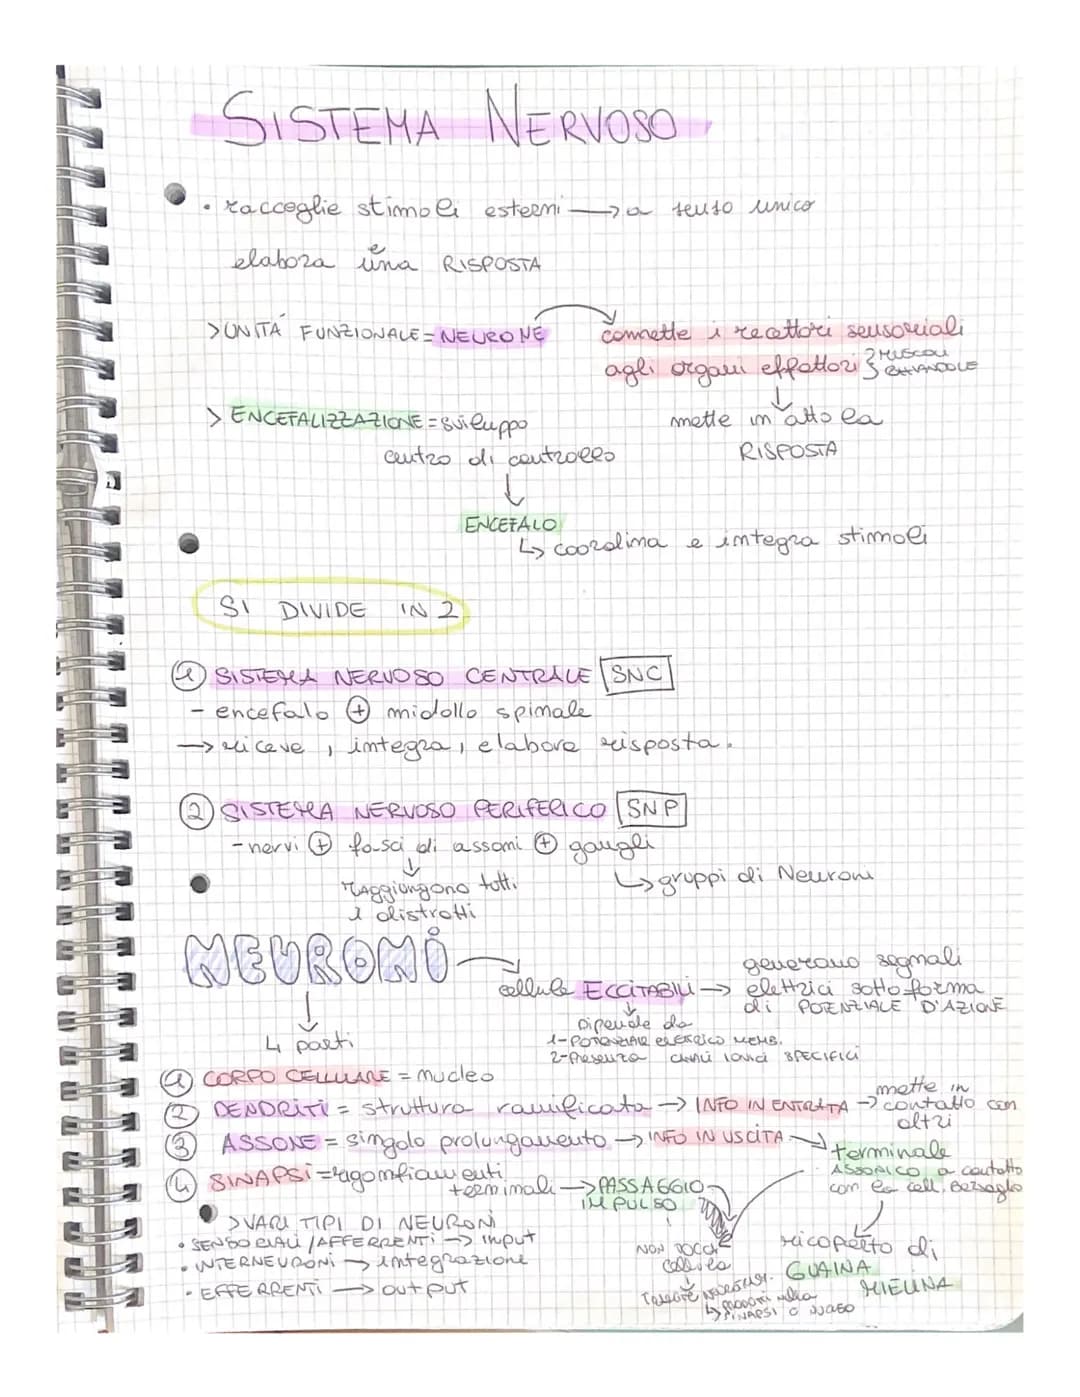 SISTEMA NERVOSO
• raccoglie stimoli esterni → a senso unico
e
elabora una RISPOSTA
> UNITÀ FUNZIONALE = NEURONE
connette i recettori sensoriali
agli organi effettori } MUSCOLI
GHIANDOLE
↓
mette in atto la
RISPOSTA
> ENCEFALIZZAZIONE = sviluppo
centro di controllo
↓
ENCEFALO
↳ coordina e integra stimoli
SI DIVIDE IN 2
① SISTEMA NERVOSO CENTRALE SNC
- encefalo ⊕ midollo spinale
→ riceve, integra, elabora risposta.
② SISTEMA NERVOSO PERIFERICO SNP
- nervi ⊕ fasci di assoni ⊕ gangli
↓
raggiungono tutti
i distretti
↳ gruppi di Neuroni
NEURONI
→ cellule ECCITABILI → generano segnali
elettrici sotto forma
di POTENZIALE D'AZIONE
↓
Dipende da
1- POTENZIALE ELETTRICO MEMB.
2- Presenza canali ionici SPECIFICI
↓
4 parti
① CORPO CELLULARE = nucleo
② DENDRITI = struttura ramificata → INFO IN ENTRATA → mette in
contatto con
altri
③ ASSONE = singolo prolungamento → INFO IN USCITA → terminale
ASSONICO a contatto
con la cell. Bersaglio
④ SINAPSI = rigonfiamenti
terminali → PASSAGGIO
IMPULSO
NON TOCCA
ricoperto di
GUAINA
MIELINA
> VARI TIPI DI NEURONI
• SENSORIALI / AFFERRENTI → input
• INTERNEURONI → integrazione
• EFFERRENTI → output